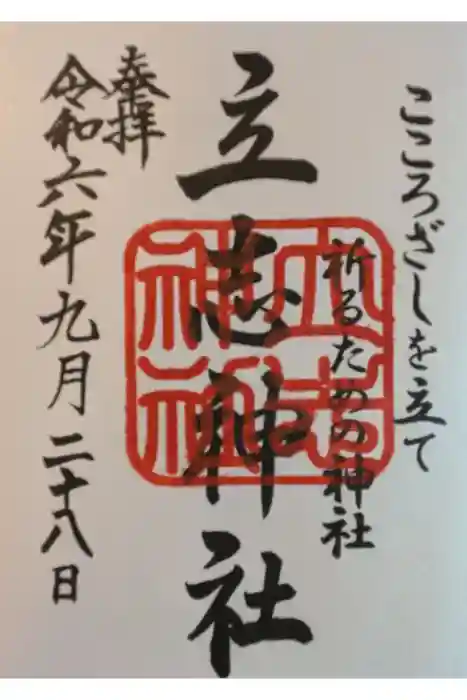 こころざしを立て
祈るための神社
立志神社
立志神社
奉拝
令和六年九月二十八日